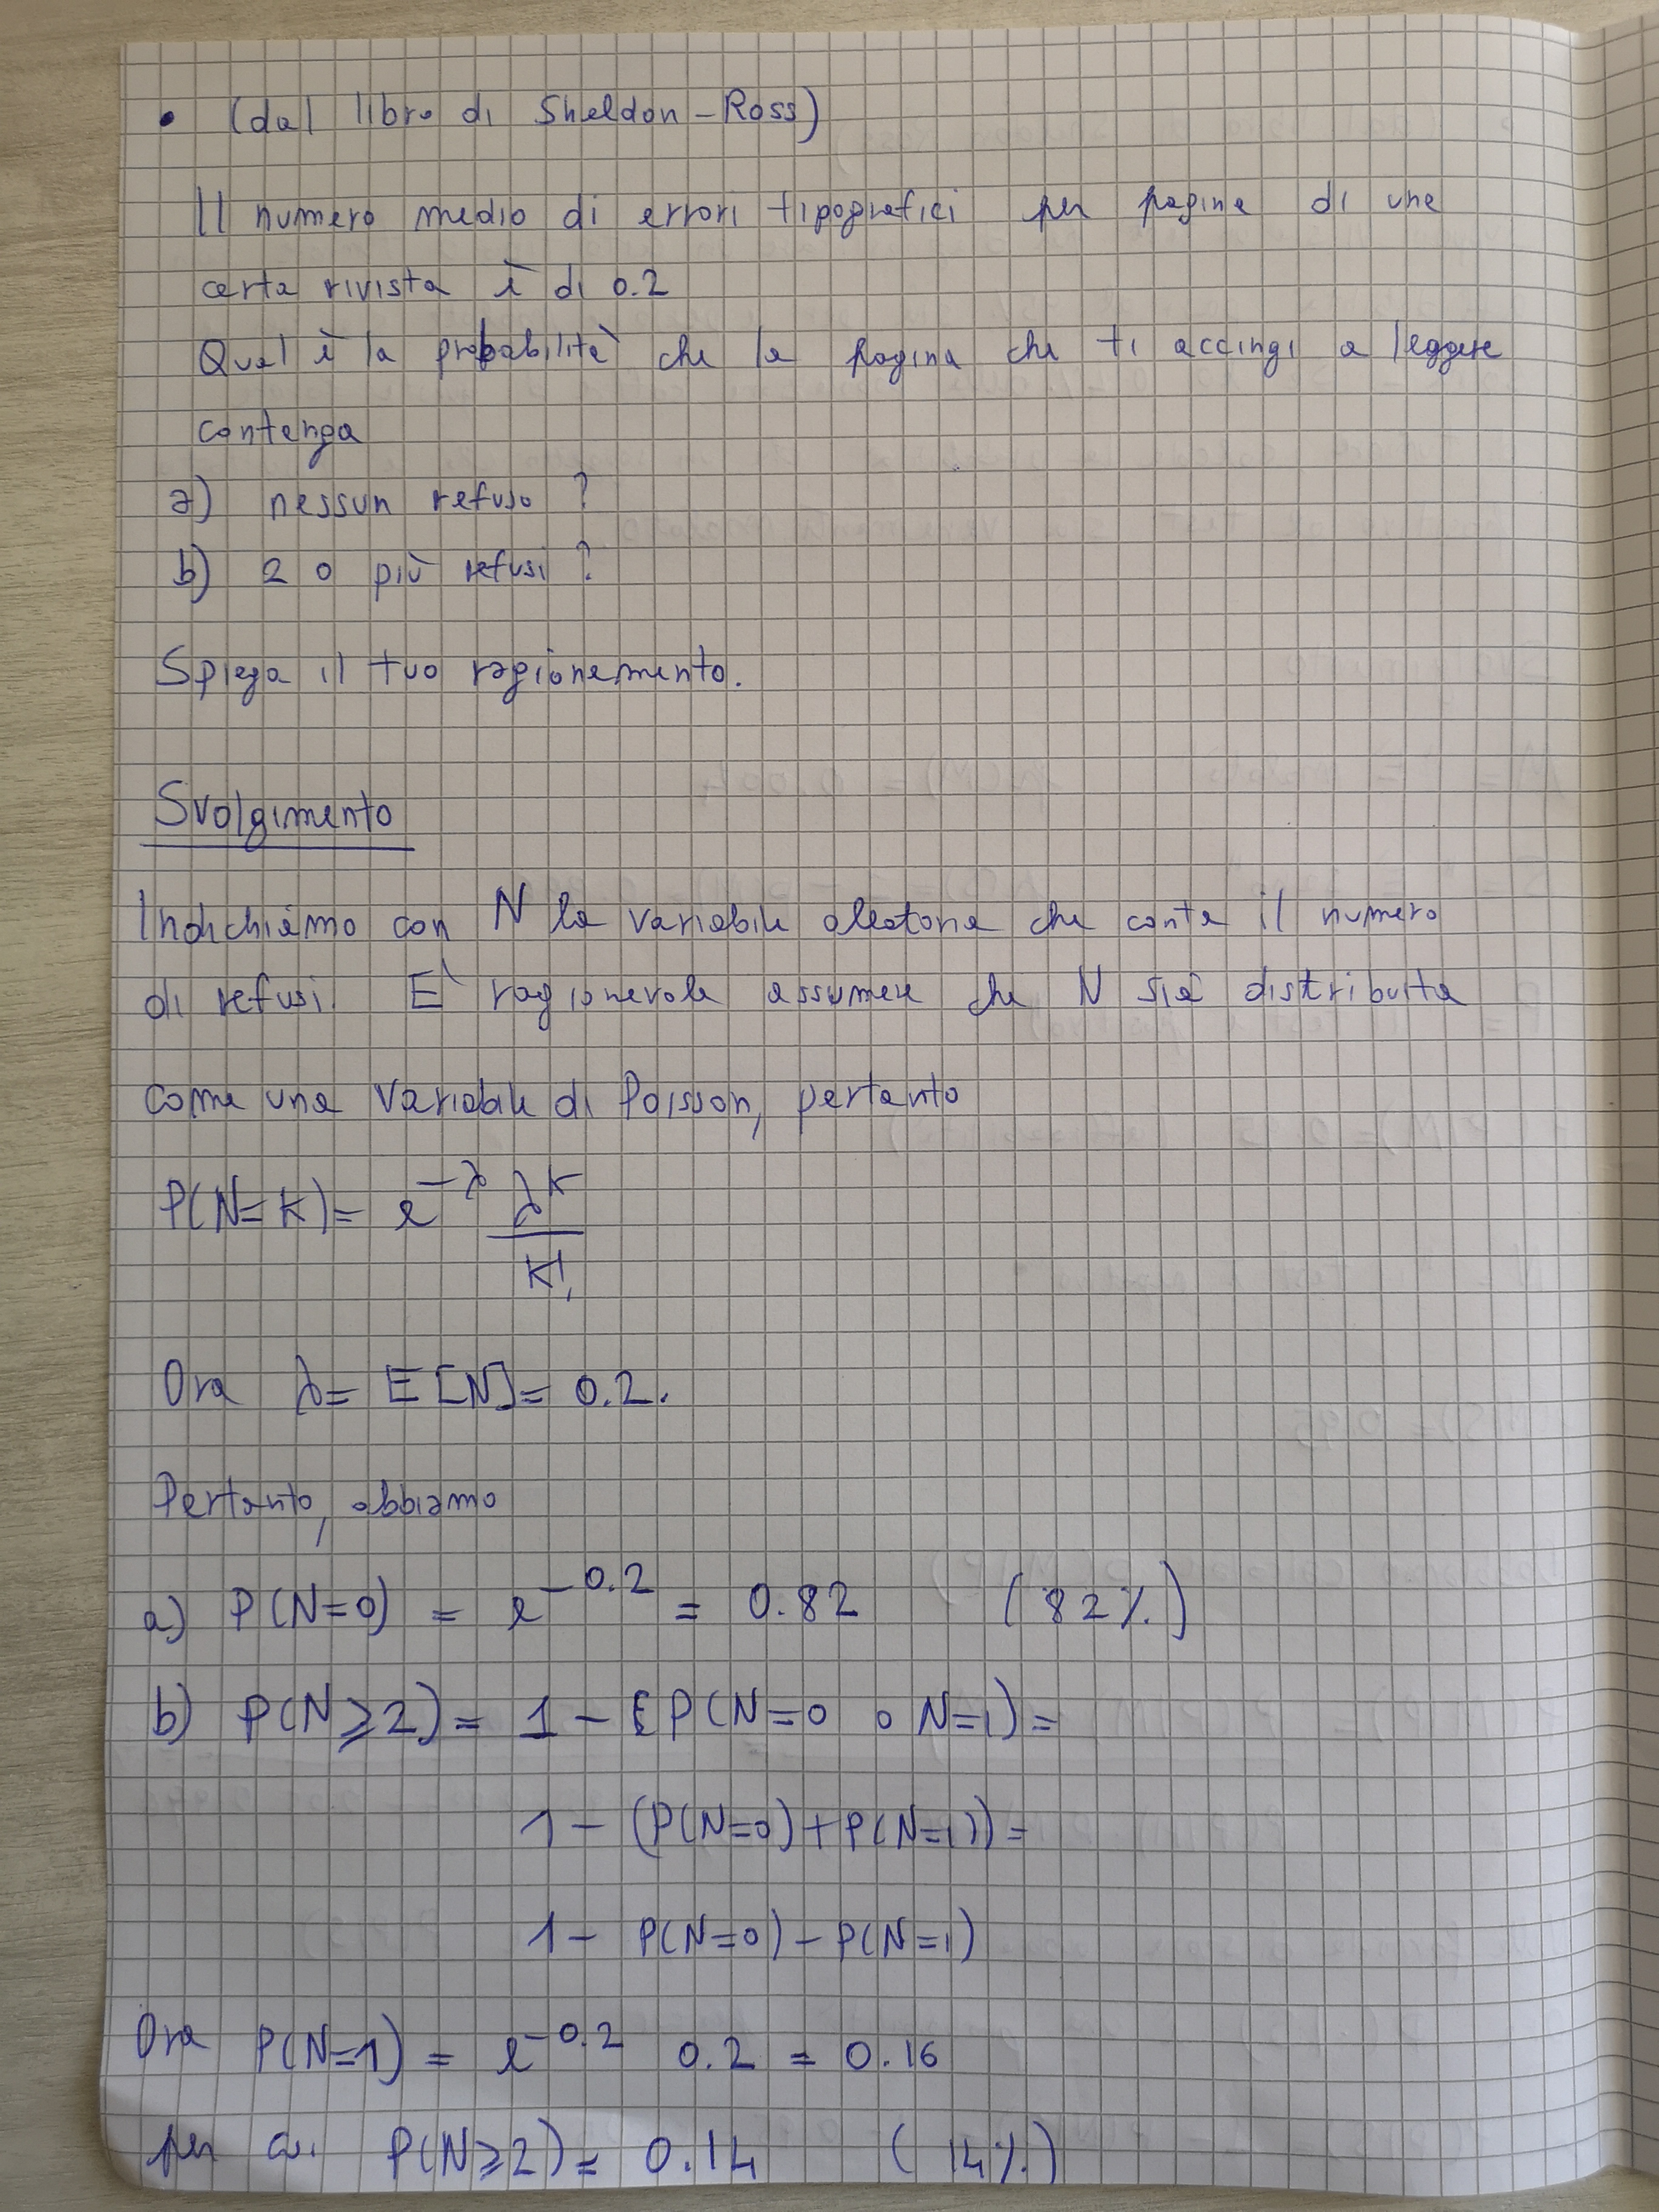 • (dal libro di Sheldon-Ross)
Il numero medio di errori tipografici per pagina di una
certa rivista è di 0.2
Qual è la probabilità che la pagina che ti accingi a leggere
contenga
a) nessun refuso ?
b) 2 o più refusi ?
Spiega il tuo ragionamento.
Svolgimento
Indichiamo con N la variabile aleatoria che conta il numero
di refusi. E' ragionevole assumere che N sia distribuita
come una variabile di Poisson, pertanto
P(N=K)= e^{-λ} λ^K / K!
Ora λ= E[N]= 0.2.
Pertanto, abbiamo
a) P(N=0) = e^{-0.2} = 0.82 (82%)
b) P(N≥2)= 1 - P(N=0 o N=1)=
1 - (P(N=0)+P(N=1))=
1 - P(N=0) - P(N=1)
Ora P(N=1) = e^{-0.2} 0.2 = 0.16
per cui P(N≥2)= 0.14 (14%)